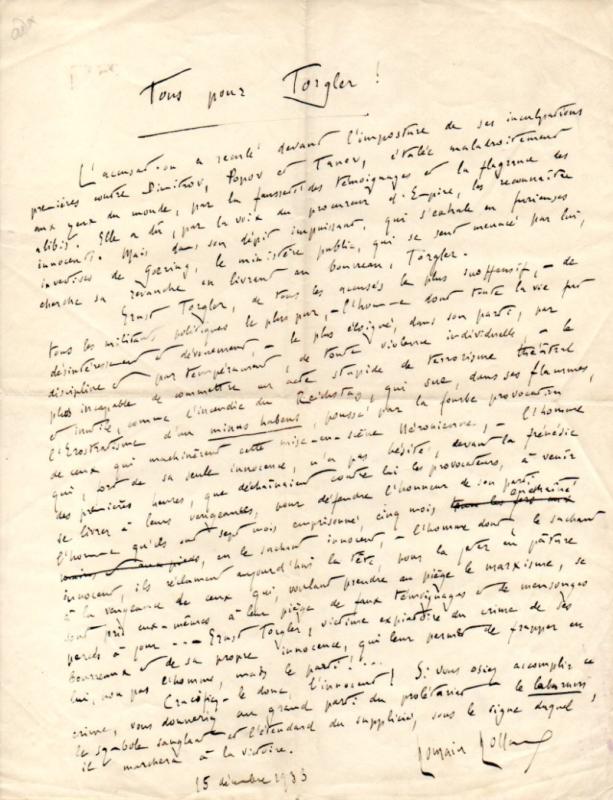 Tous pour Torgler !
L'accusation a reculé devant l'imposture de ses inculpations
premières contre Dimitrov, Popov et Tanev, étalée maladroitement
aux yeux du monde, par la fausseté des témoignages et la flagrance des
alibis. Elle a dû, par la voix du procureur d'Empire, les reconnaître
innocents. Mais dans son dépit impuissant, qui s'exhale en furieuses
invectives de Goering, le ministère public, qui se sent menacé par lui,
cherche sa revanche en livrant au bourreau, Torgler.
Ernst Torgler, de tous les accusés le plus inoffensif, – de
tous les militants politiques le plus pur, – l'homme dont toute la vie fut
désintéressement et dévouement, – le plus éloigné, dans son parti, par
discipline et par tempérament, de toute violence individuelle, – le
plus incapable de commettre un acte stupide de terrorisme théâtral
et inutile, comme l'incendie du Reichstag, qui sue, dans ses flammes,
l'Erostratisme d'un minus habens, poussé par la fourbe provocation
de ceux qui machinèrent cette mise-en-scène Néronienne, – l'homme
qui, fort de sa seule innocence, n'a pas hésité, devant la frénésie
des premières heures, que déchaînaient contre lui les provocateurs, à venir
se livrer à leurs vengeances, pour défendre l'honneur de son parti, –
l'homme qu'ils ont sept mois emprisonné, cinq mois, enchaîné
en le sachant innocent, – l'homme dont, le sachant
innocent, ils réclament aujourd'hui la tête, pour la jeter en pâture
à la vengeance de ceux qui, voulant prendre au piège le marxisme, se
sont pris eux-mêmes à leur piège de faux témoignages et de mensonges
percés à jour... – Ernst Torgler, victime expiatoire du crime de ses
bourreaux et de sa propre innocence, qui leur permet de frapper en
lui, non pas l'homme, mais le parti !...
Crucifiez-le donc, l'innocent ! Si vous osiez accomplir ce
crime, vous donneriez au grand parti du prolétariat – le labarum,
le symbole sanglant et l'étendard du supplicié, sous le signe duquel,
il marchera à la victoire.
Romain Rolland
15 décembre 1933